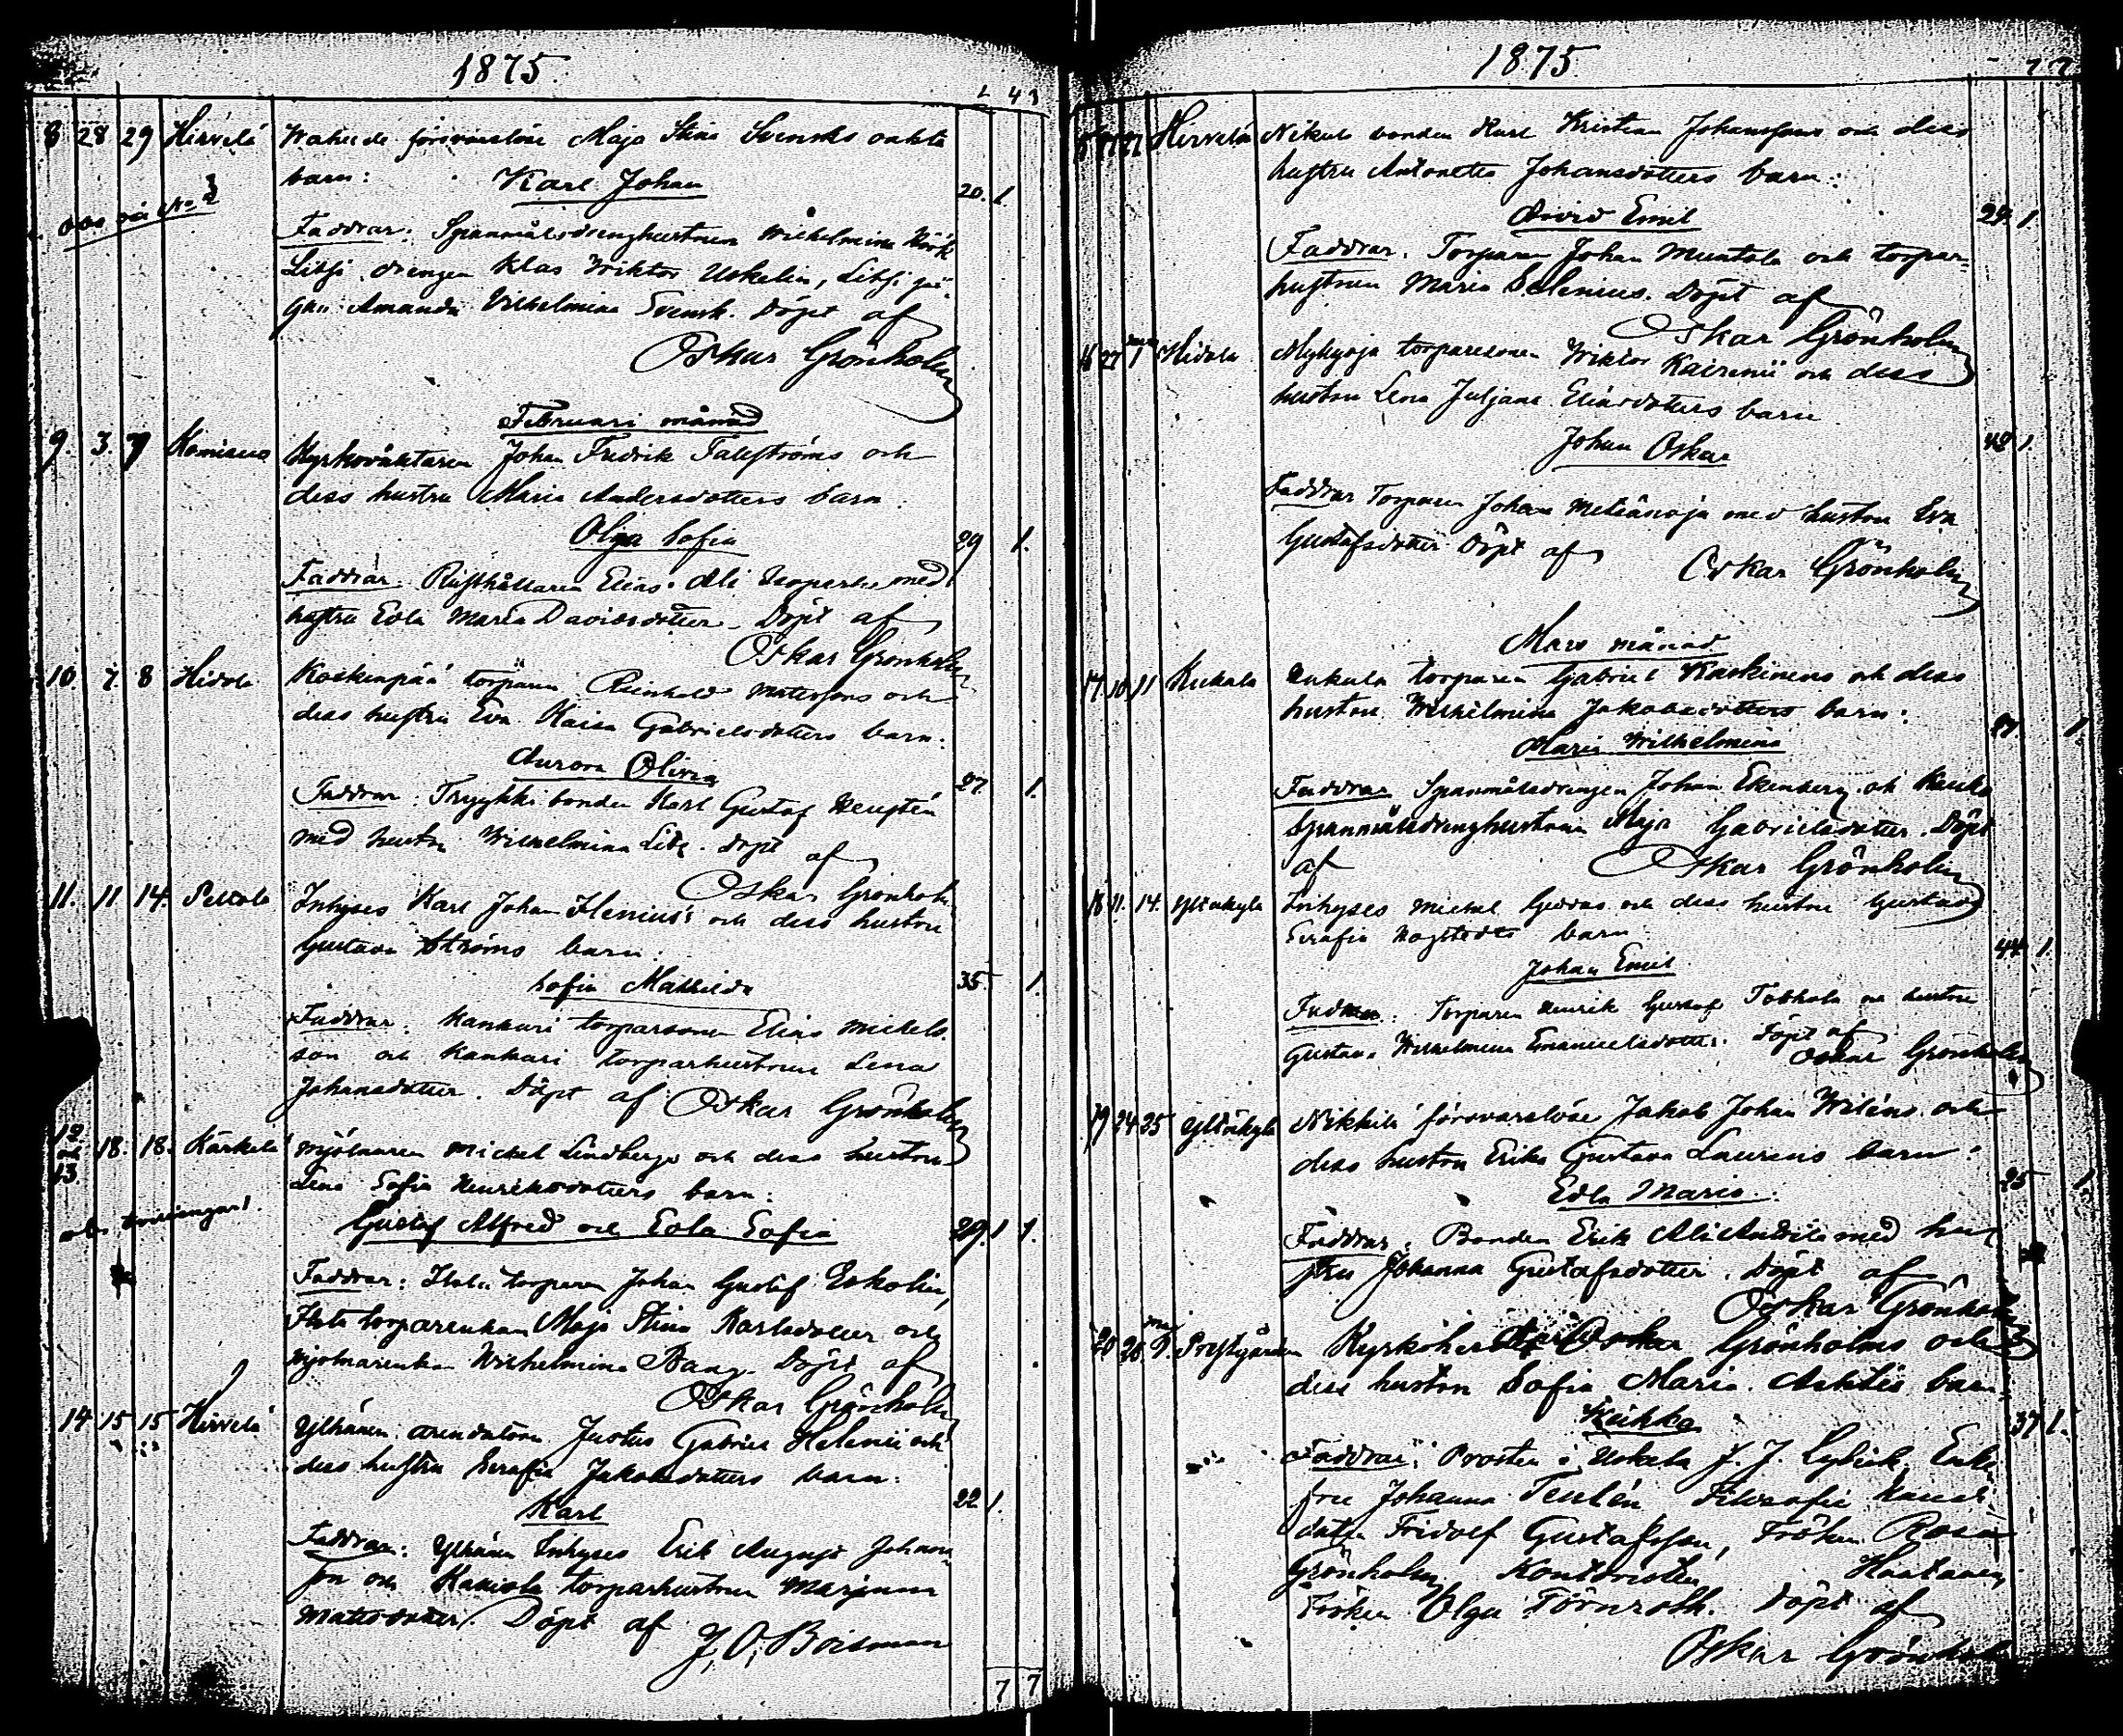 1875.
8 28 29 Hirvelä
försvarslöse Maja Stina Svensks oäkta
barn:
Karl Johan
20. 1
Faddrar: Spanmålsdrenghustrun Wilhelmina
drengen Klas Wiktor Uskelin,
Amanda Vilhelmina Svensk. Döpt af
Oskar Grönholm
Februari månad
9. 3. 7
Kyrkoväktaren Johan Fredrik Talströms och
dess hustru Maria Andersdotters barn
Olga Sofia
29 1.
Faddrar: Rusthållaren Elias med
hustru Edla Maria Davidsdotter. Döpt af
Oskar Grönholm
10. 7. 8 Hidola
Koskenpää torparen Reinhold Matessons och
dess hustru Eva Kaisa Gabrielsdotters barn:
Aurora Olivia
27. 1.
Faddrar: Tryykki bonden Karl Gustaf
med hustru Wilhelmina. Döpt af
Oskar Grönholm
11. 11 14. Peltola
Inhyses Karl Johan och dess hustru
Gustava Ströms barn:
Sofia Mathilda
35. 1.
Faddrar: Kankari torparsonen Elias Mickels-
son och Kankari torparhustrun Lena
Johansdotter. Döpt af Oskar Grönholm
12 och 13. 18. 18. Kärkelä
Mjölnaren Mickel Lindbergs och dess hustru
Lena Sofia Henriksdotters barn:
obs. tvillingar!
Gustaf Alfred och Edla Sofia
29. 1 1.
Faddrar: torparen Johan Gustaf Eskolin,
torparenkan Maja Stina Karlsdotter och
Mjölnarenkan Wilhelmina Bang. Döpt af
Oskar Grönholm
14 15 15 Hirvelä
Ylhänen arendatorn Justus Gabriel Helenii och
dess hustru Serafia Jakobsdotters barn:
Karl
22 1.
Faddrar: Ylhänen Inhyses Erik August Johans-
son och torparhustrun Marjana
Matsdotter. Döpt af
J. O. Boisman
7 7
1875.
Hirvelä
Nikula bonden Karl Kristian Johanssons och dess
hustru Antonetta Johansdotters barn:
Arvid Emil
1.
Faddrar: Torparen Johan Muntola och torpar-
hustrun Maria Selenius. Döpt af
Oskar Grönholm
16 27 1 Hidola
Myllyoja torparesonen Wiktor Kairenii och dess
hustru Lena Juljana Eliasdotters barn
Johan Oskar
1.
Faddrar Torparen Johan Metsänoja med hustru Eva
Gustafsdotter Döpt af
Oskar Grönholm
Mars månad
17. 10. 11 Kukala
Kukala torparen Gabriel Koskinens och dess
hustru Wilhelmina Jakobsdotters barn:
Maria Wilhelmina
1.
Faddrar Spanmålsdrengen Johan Ekenberg och
Spanmålsdrenghustrun Maja Gabrielsdotter. Döpt
af
Oskar Grönholm
18 11. 14. Yliskylä
Inhyses Mickel och dess hustru Gustava
Serafia Hagstedts barn:
Johan Emil
44 1.
Faddrar: Torparen Henrik Gustaf och hustru
Gustava Wilhelmina Emanuelsdotter. Döpt af
Oskar Grönholm
19 24 25 Yliskylä
Nikkilä försvarslöse Jakob Johan Wiléns och
dess hustru Erika Gustava Laurens barn:
Edla Maria
25 1.
Faddrar: Bonden Erik med hu-
stru Johanna Gustafsdotter. Döpt af
Oskar Grönholm
20 20 Prestgården
Kyrkoherden Karl Oskar Grönholms och
dess hustru Sofia Maria barn:
37 1.
Faddrar: Prosten i Uskela J. J. Enke-
fru Johanna Teulén Filosofie Kandi-
daten Fridolf Gustafsson, Fröken Rosa
Grönholm Kontoristen
Fröken Olga Törnroth. Döpt af
Oskar Grönholm